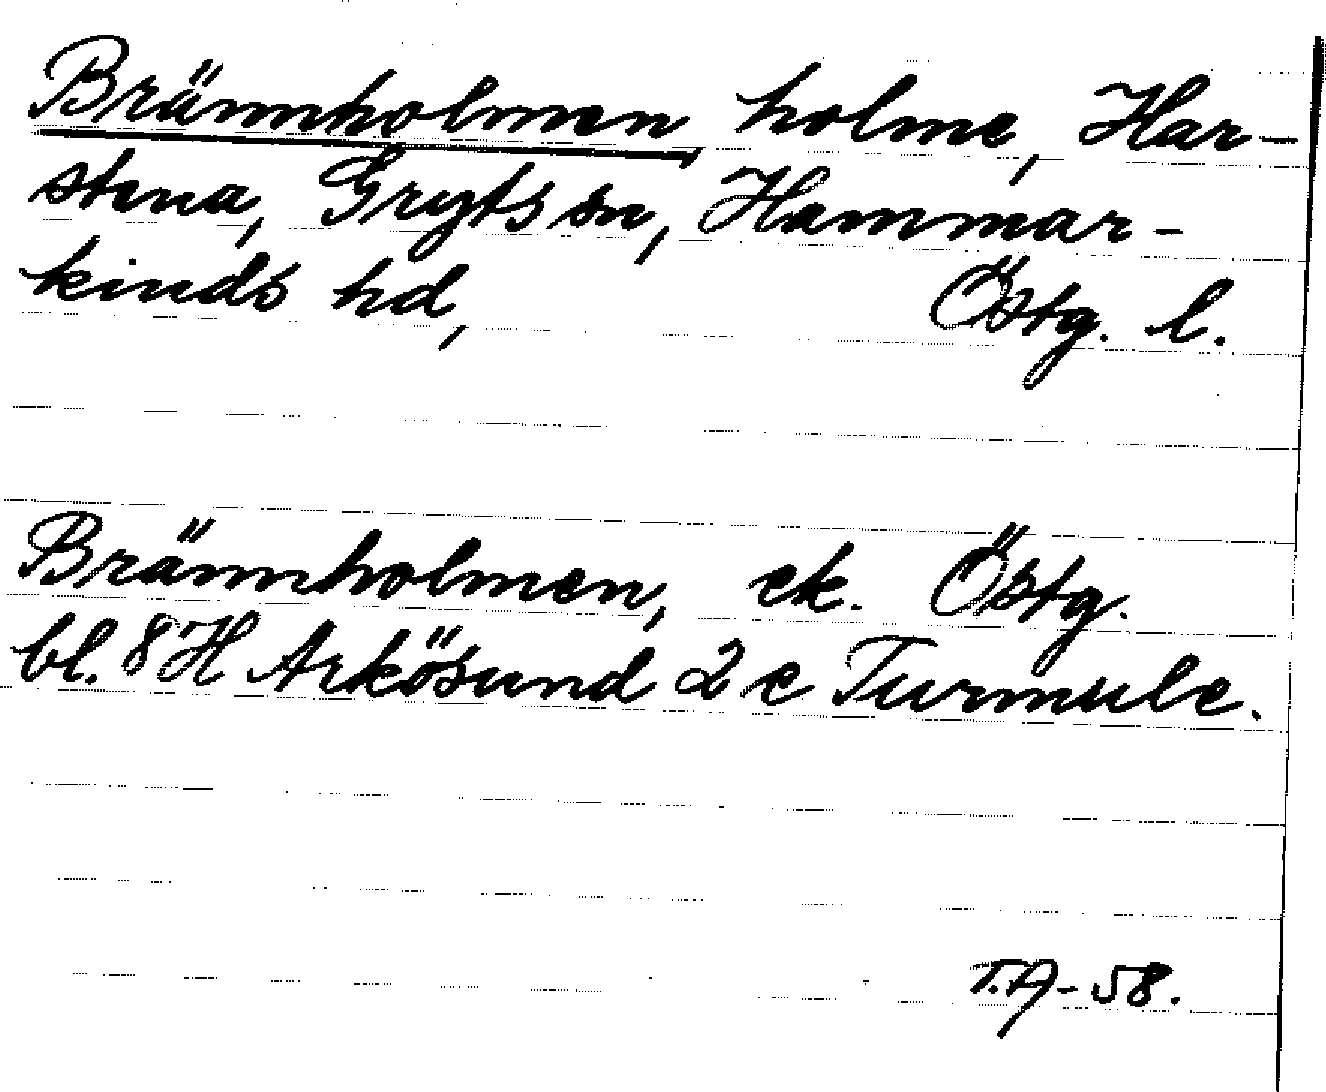 Brännholmen holme, Har-
stena, Gryts sn, Hammar-
kinds hd, Östg. l.
Brännholmen, ek. Östg.
bl. 8H Arkösund 2 c Turmule.
T.A-58.